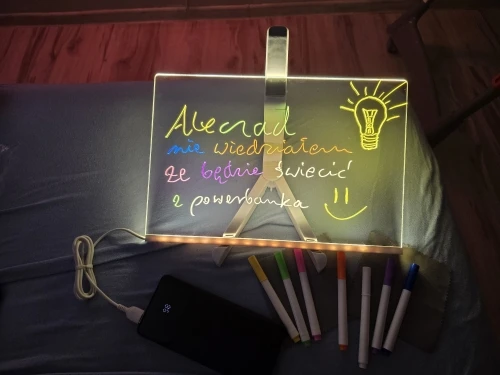 Ale czad
nie wiedziałem
że będzie świecić
z powerbanka